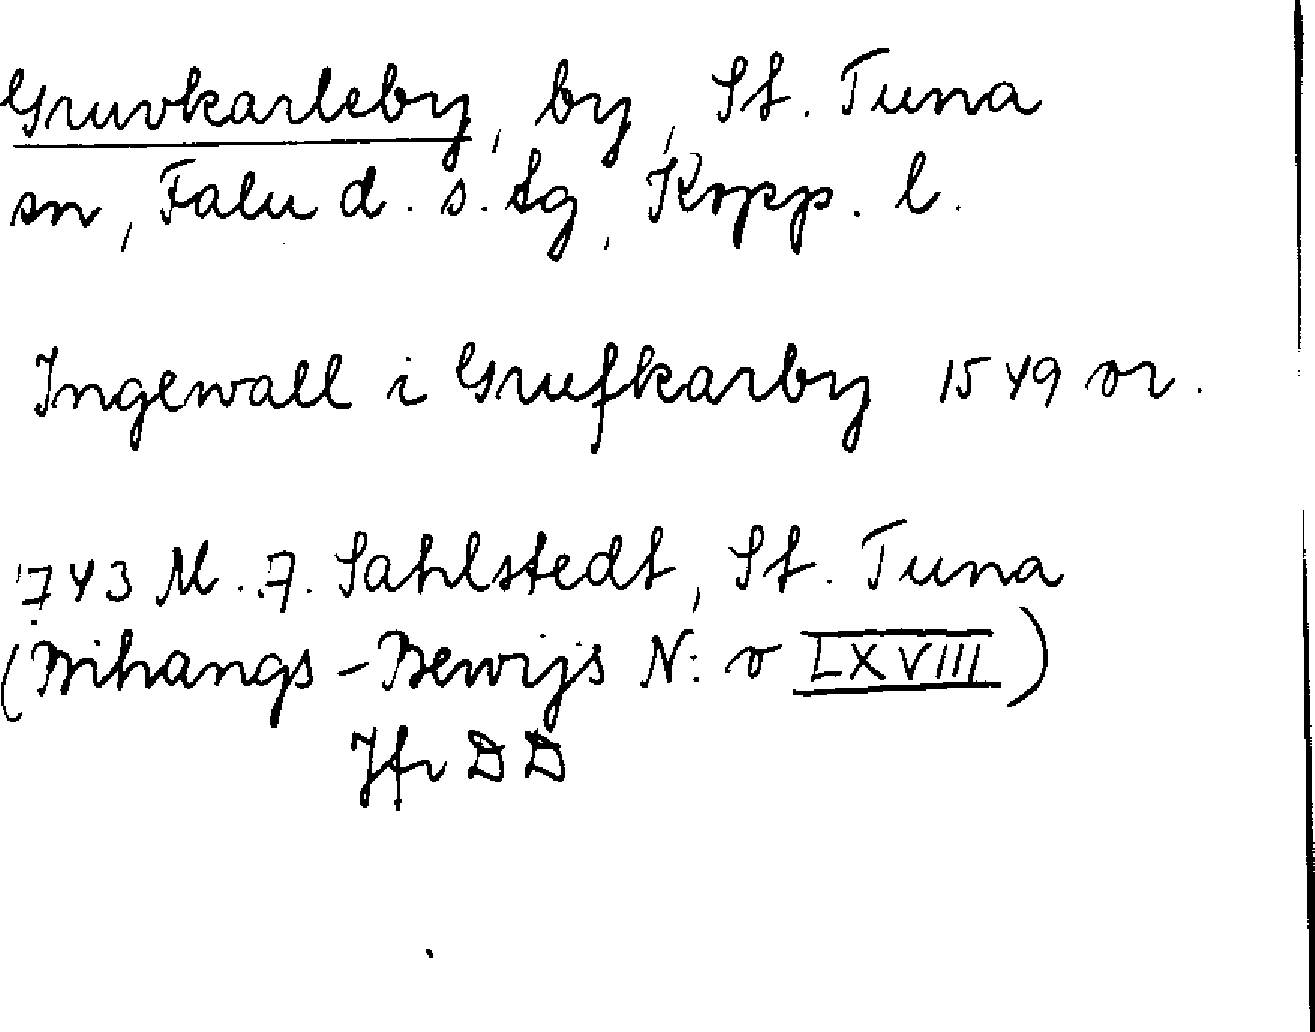 Gruvkarleby, by, St. Tuna
sn, Falu d. s. tg, Kopp. l.
Ingewall i Grufkarby 1549 or.
1743 M. A. Sahlstedt, St. Tuna
(Bihangs-Bewijs N:o LXVIII)
Jfr DD